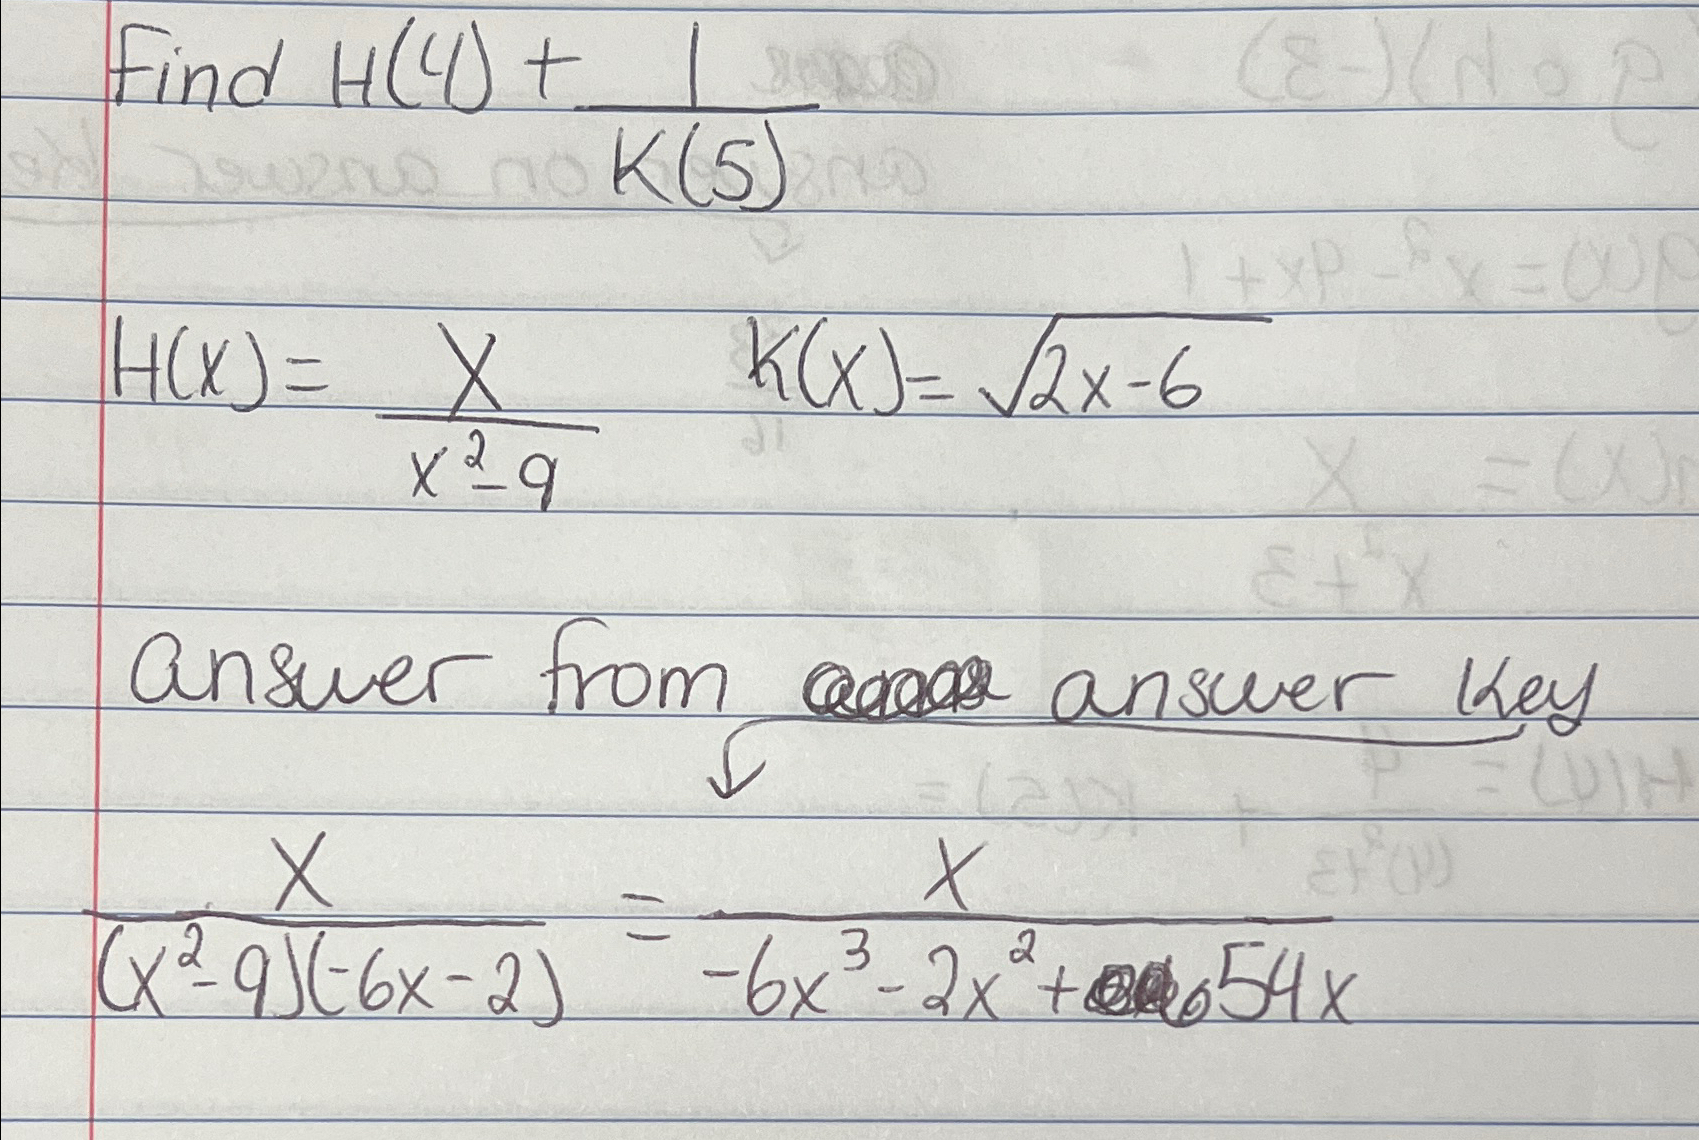 Find H(4) + 1/K(5)
H(x) = x/(x²-9) K(x) = √(2x-6)
answer from answer key
x/((x²-9)(-6x-2)) = x/(-6x³-2x²+54x)